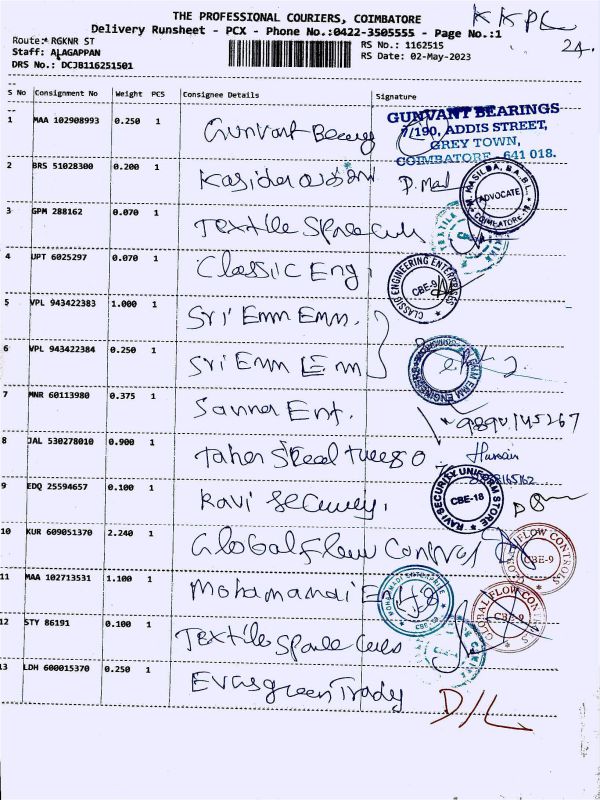 THE PROFESSIONAL COURIERS, COIMBATORE
KKPC
Delivery Runsheet - PCX - Phone No.:0422-3505555 - Page No.:1
Route: RGKNR ST
RS No.: 1162515
24.
Staff: ALAGAPPAN
RS Date: 02-May-2023
DRS No.: DCJB116251501
S No Consignment No Weight PCS Consignee Details Signature
1 MAA 102908993 0.250 1 Gunvant Bearing
GUNVANT BEARINGS
7/190, ADDIS STREET,
GREY TOWN,
COIMBATORE - 641 018.
2 BRS 51028300 0.200 1
M. MASILBA, B.A., B.L.
ADVOCATE
COIMBATORE
3 GPM 288162 0.070 1 Textile Spare
4 UPT 6025297 0.070 1 Classic Eng.
CLASSIC ENGINEERING ENTERPRISES
CBE-9
5 VPL 943422383 1.000 1 Sri Emm Emm.
6 VPL 943422384 0.250 1 Sri Emm Emm
7 MNR 60113980 0.375 1 Ent.
8 JAL 530278010 0.900 1 Taher Steel
Hussain
9 EDQ 25594657 0.100 1 Ravi Security.
RAVI SECURITY UNIFORM STORE
CBE-18
10 KUR 609051370 2.240 1 Global Flow Control
GLOBAL FLOW CONTROLS
CBE-9
11 MAA 102713531 1.100 1 Mohamandi Ent
GLOBAL FLOW CONTROLS
CBE-9
12 STY 86191 0.100 1 Textile Spare
13 LDH 600015370 0.250 1 Evasgreen Trady
D/L